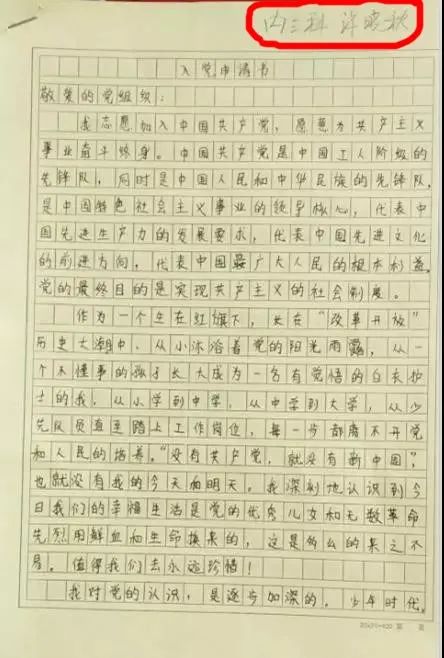 内三科 许晓秋
入党申请书
敬爱的党组织：
我志愿加入中国共产党，愿意为共产主义
事业奋斗终身。中国共产党是中国工人阶级的
先锋队，同时是中国人民和中华民族的先锋队，
是中国特色社会主义事业的领导核心，代表中
国先进生产力的发展要求，代表中国先进文化
的前进方向，代表中国最广大人民的根本利益。
党的最终目的是实现共产主义的社会制度。
作为一个生在红旗下，长在“改革开放”
历史大潮中、从小沐浴着党的阳光雨露，从一
个不懂事的孩子长大成为一名有觉悟的白衣护
士的我，从小学到中学，从中学到大学，从少
先队员直至踏上工作岗位，每一步都离不开党
和人民的培养。“没有共产党，就没有新中国”，
也就没有我的今天和明天。我深刻地认识到今
日我们的幸福生活是党的优秀儿女和无数革命
先烈用鲜血和生命换来的，这是多么的来之不
易！值得我们去永远珍惜！
我对党的认识，是逐步加深的。少年时代，
20×20=400 第 页